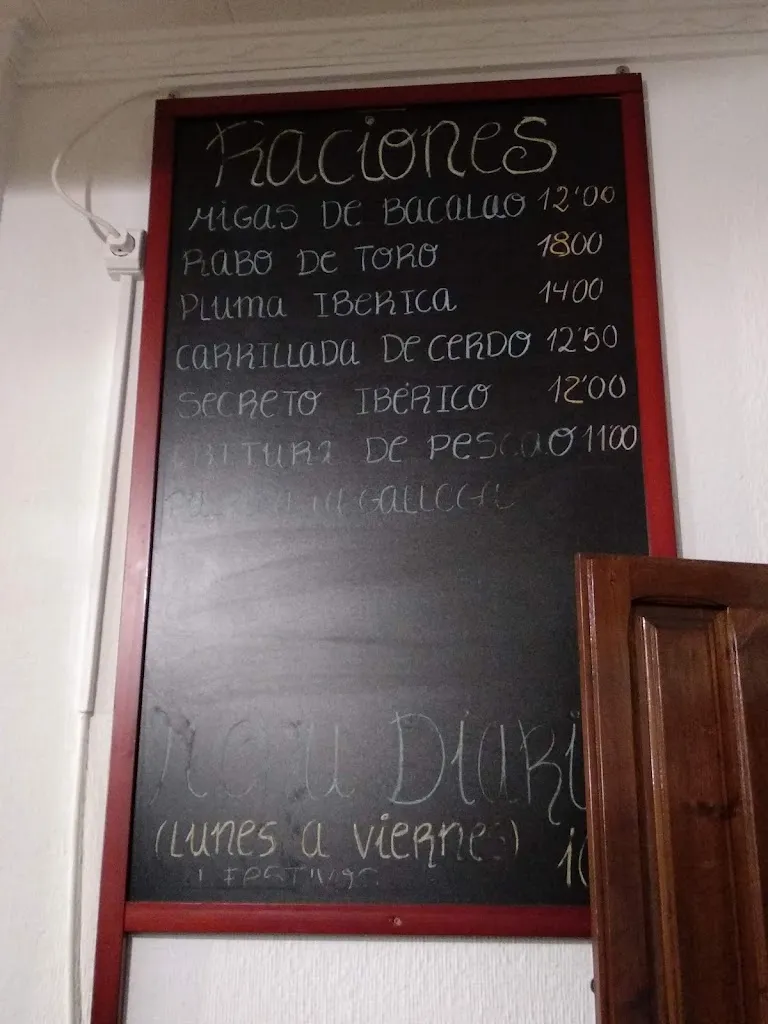 Raciones
MIGAS DE BACALAO 12'00
RABO DE TORO 18'00
PLUMA IBERICA 14'00
CARRILLADA DE CERDO 12'50
SECRETO IBÉRICO 12'00
DE PESCAO 11'00
Menu DIARI
(LUNES A VIERNES) 10
FESTIVOS